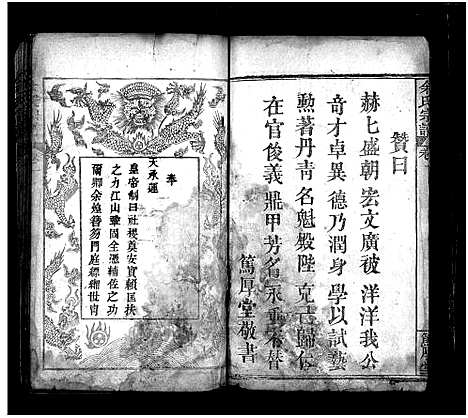 余氏宗譜
贊曰
赫七盛朝 宏文廣被 洋洋我公
奇才卓異 德乃潤身 學以試藝
勲著丹青 名魁殿陛 克己歸仁
在官俊義 鼎甲芳名 永垂不替
篤厚堂敬書
奉
天承運
皇帝制曰社稷奠安實賴匡扶
之力江山鞏固全憑輔佐之功
爾卿余煌簪笏門庭縹緗世冑